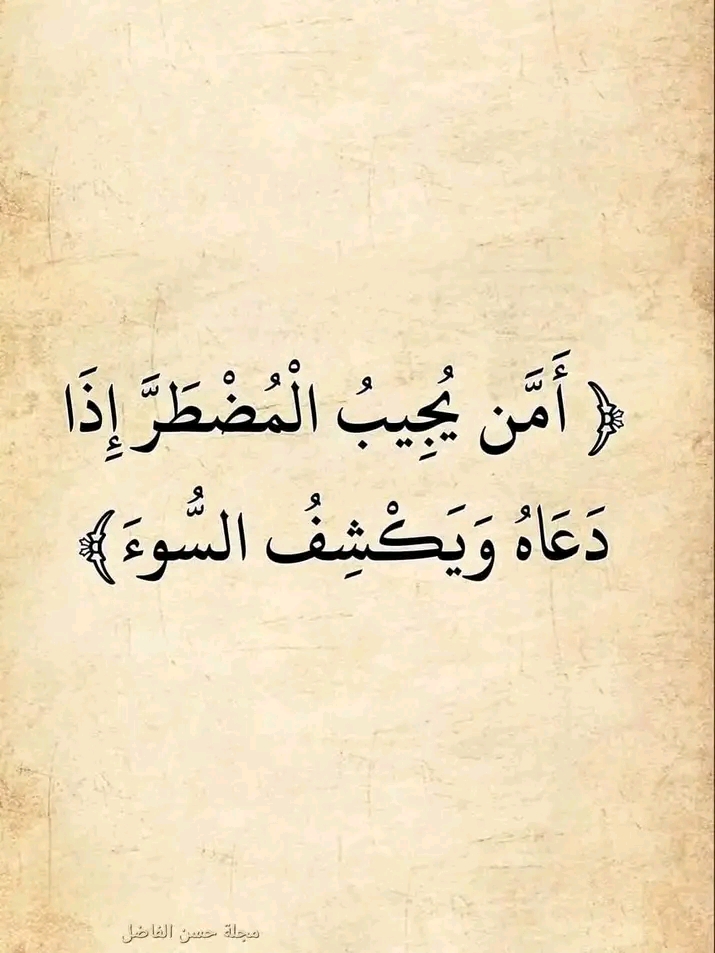 ﴿ أَمَّن يُجِيبُ الْمُضْطَرَّ إِذَا
دَعَاهُ وَيَكْشِفُ السُّوءَ ﴾
مجلة حسن الفاضل